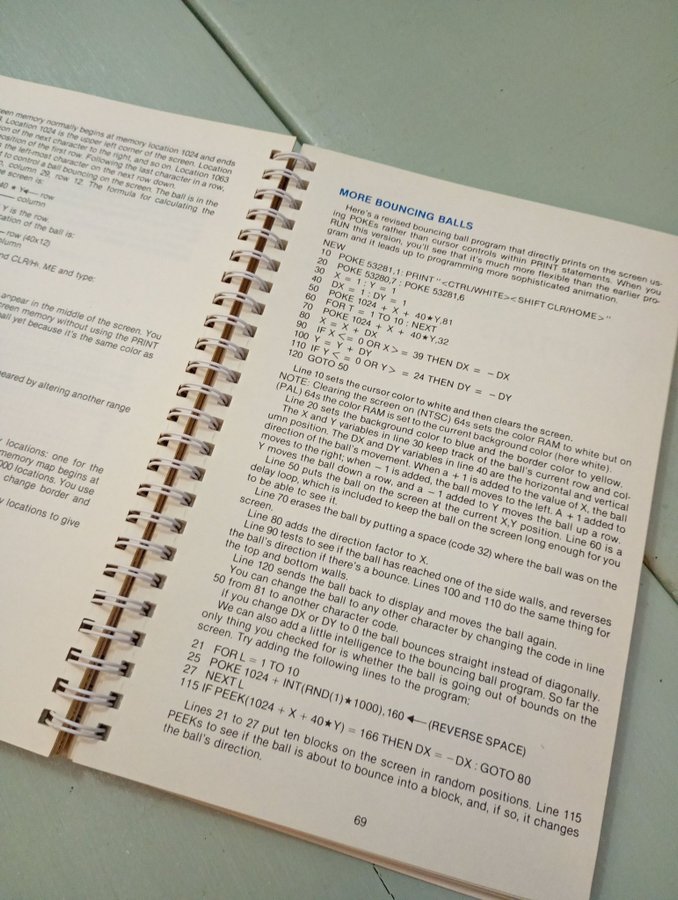 een memory normally begins at memory location 1024 and ends
Location 1024 is the upper left corner of the screen. Location
on of the next character to the right, and so on. Location 1063
position of the first row. Following the last character in a row,
the left-most character on the next row down.
t to control a ball bouncing on the screen. The ball is in the
column 29, row 12. The formula for calculating the
screen is:
40 * Y◄— row
— column
Y is the row.
cation of the ball is:
— row (40x12)
olumn
nd CLR/H. ME and type:
appear in the middle of the screen. You
creen memory without using the PRINT
all yet because it's the same color as
eared by altering another range
locations: one for the
memory map begins at
000 locations. You use
change border and
y locations to give
MORE BOUNCING BALLS
Here's a revised bouncing ball program that directly prints on the screen us-
ing POKEs rather than cursor controls within PRINT statements. When you
RUN this version, you'll see that it's much more flexible than the earlier pro-
gram and it leads up to programming more sophisticated animation.
NEW
10 POKE 53281,1: PRINT "<CTRL/WHITE><SHIFT CLR/HOME>"
20 POKE 53280,7 : POKE 53281,6
30 X = 1 : Y = 1
40 DX = 1 : DY = 1
50 POKE 1024 + X + 40★Y,81
60 FOR T = 1 TO 10 : NEXT
70 POKE 1024 + X + 40★Y,32
80 X = X + DX
90 IF X< = 0 OR X> = 39 THEN DX = -DX
100 Y = Y + DY
110 IF Y< = 0 OR Y> = 24 THEN DY = -DY
120 GOTO 50
Line 10 sets the cursor color to white and then clears the screen.
NOTE: Clearing the screen on (NTSC) 64s sets the color RAM to white but on
(PAL) 64s the color RAM is set to the current background color (here white).
Line 20 sets the background color to blue and the border color to yellow.
The X and Y variables in line 30 keep track of the ball's current row and col-
umn position. The DX and DY variables in line 40 are the horizontal and vertical
direction of the ball's movement. When a +1 is added to the value of X, the ball
moves to the right; when -1 is added, the ball moves to the left. A +1 added to
Y moves the ball down a row, and a -1 added to Y moves the ball up a row.
Line 50 puts the ball on the screen at the current X,Y position. Line 60 is a
delay loop, which is included to keep the ball on the screen long enough for you
to be able to see it.
Line 70 erases the ball by putting a space (code 32) where the ball was on the
screen.
Line 80 adds the direction factor to X.
Line 90 tests to see if the ball has reached one of the side walls, and reverses
the ball's direction if there's a bounce. Lines 100 and 110 do the same thing for
the top and bottom walls.
Line 120 sends the ball back to display and moves the ball again.
You can change the ball to any other character by changing the code in line
50 from 81 to another character code.
If you change DX or DY to 0 the ball bounces straight instead of diagonally.
We can also add a little intelligence to the bouncing ball program. So far the
only thing you checked for is whether the ball is going out of bounds on the
screen. Try adding the following lines to the program:
21 FOR L = 1 TO 10
25 POKE 1024 + INT(RND(1)★1000),160 ◄— (REVERSE SPACE)
27 NEXT L
115 IF PEEK(1024 + X + 40★Y) = 166 THEN DX = -DX : GOTO 80
Lines 21 to 27 put ten blocks on the screen in random positions. Line 115
PEEKs to see if the ball is about to bounce into a block, and, if so, it changes
the ball's direction.
69